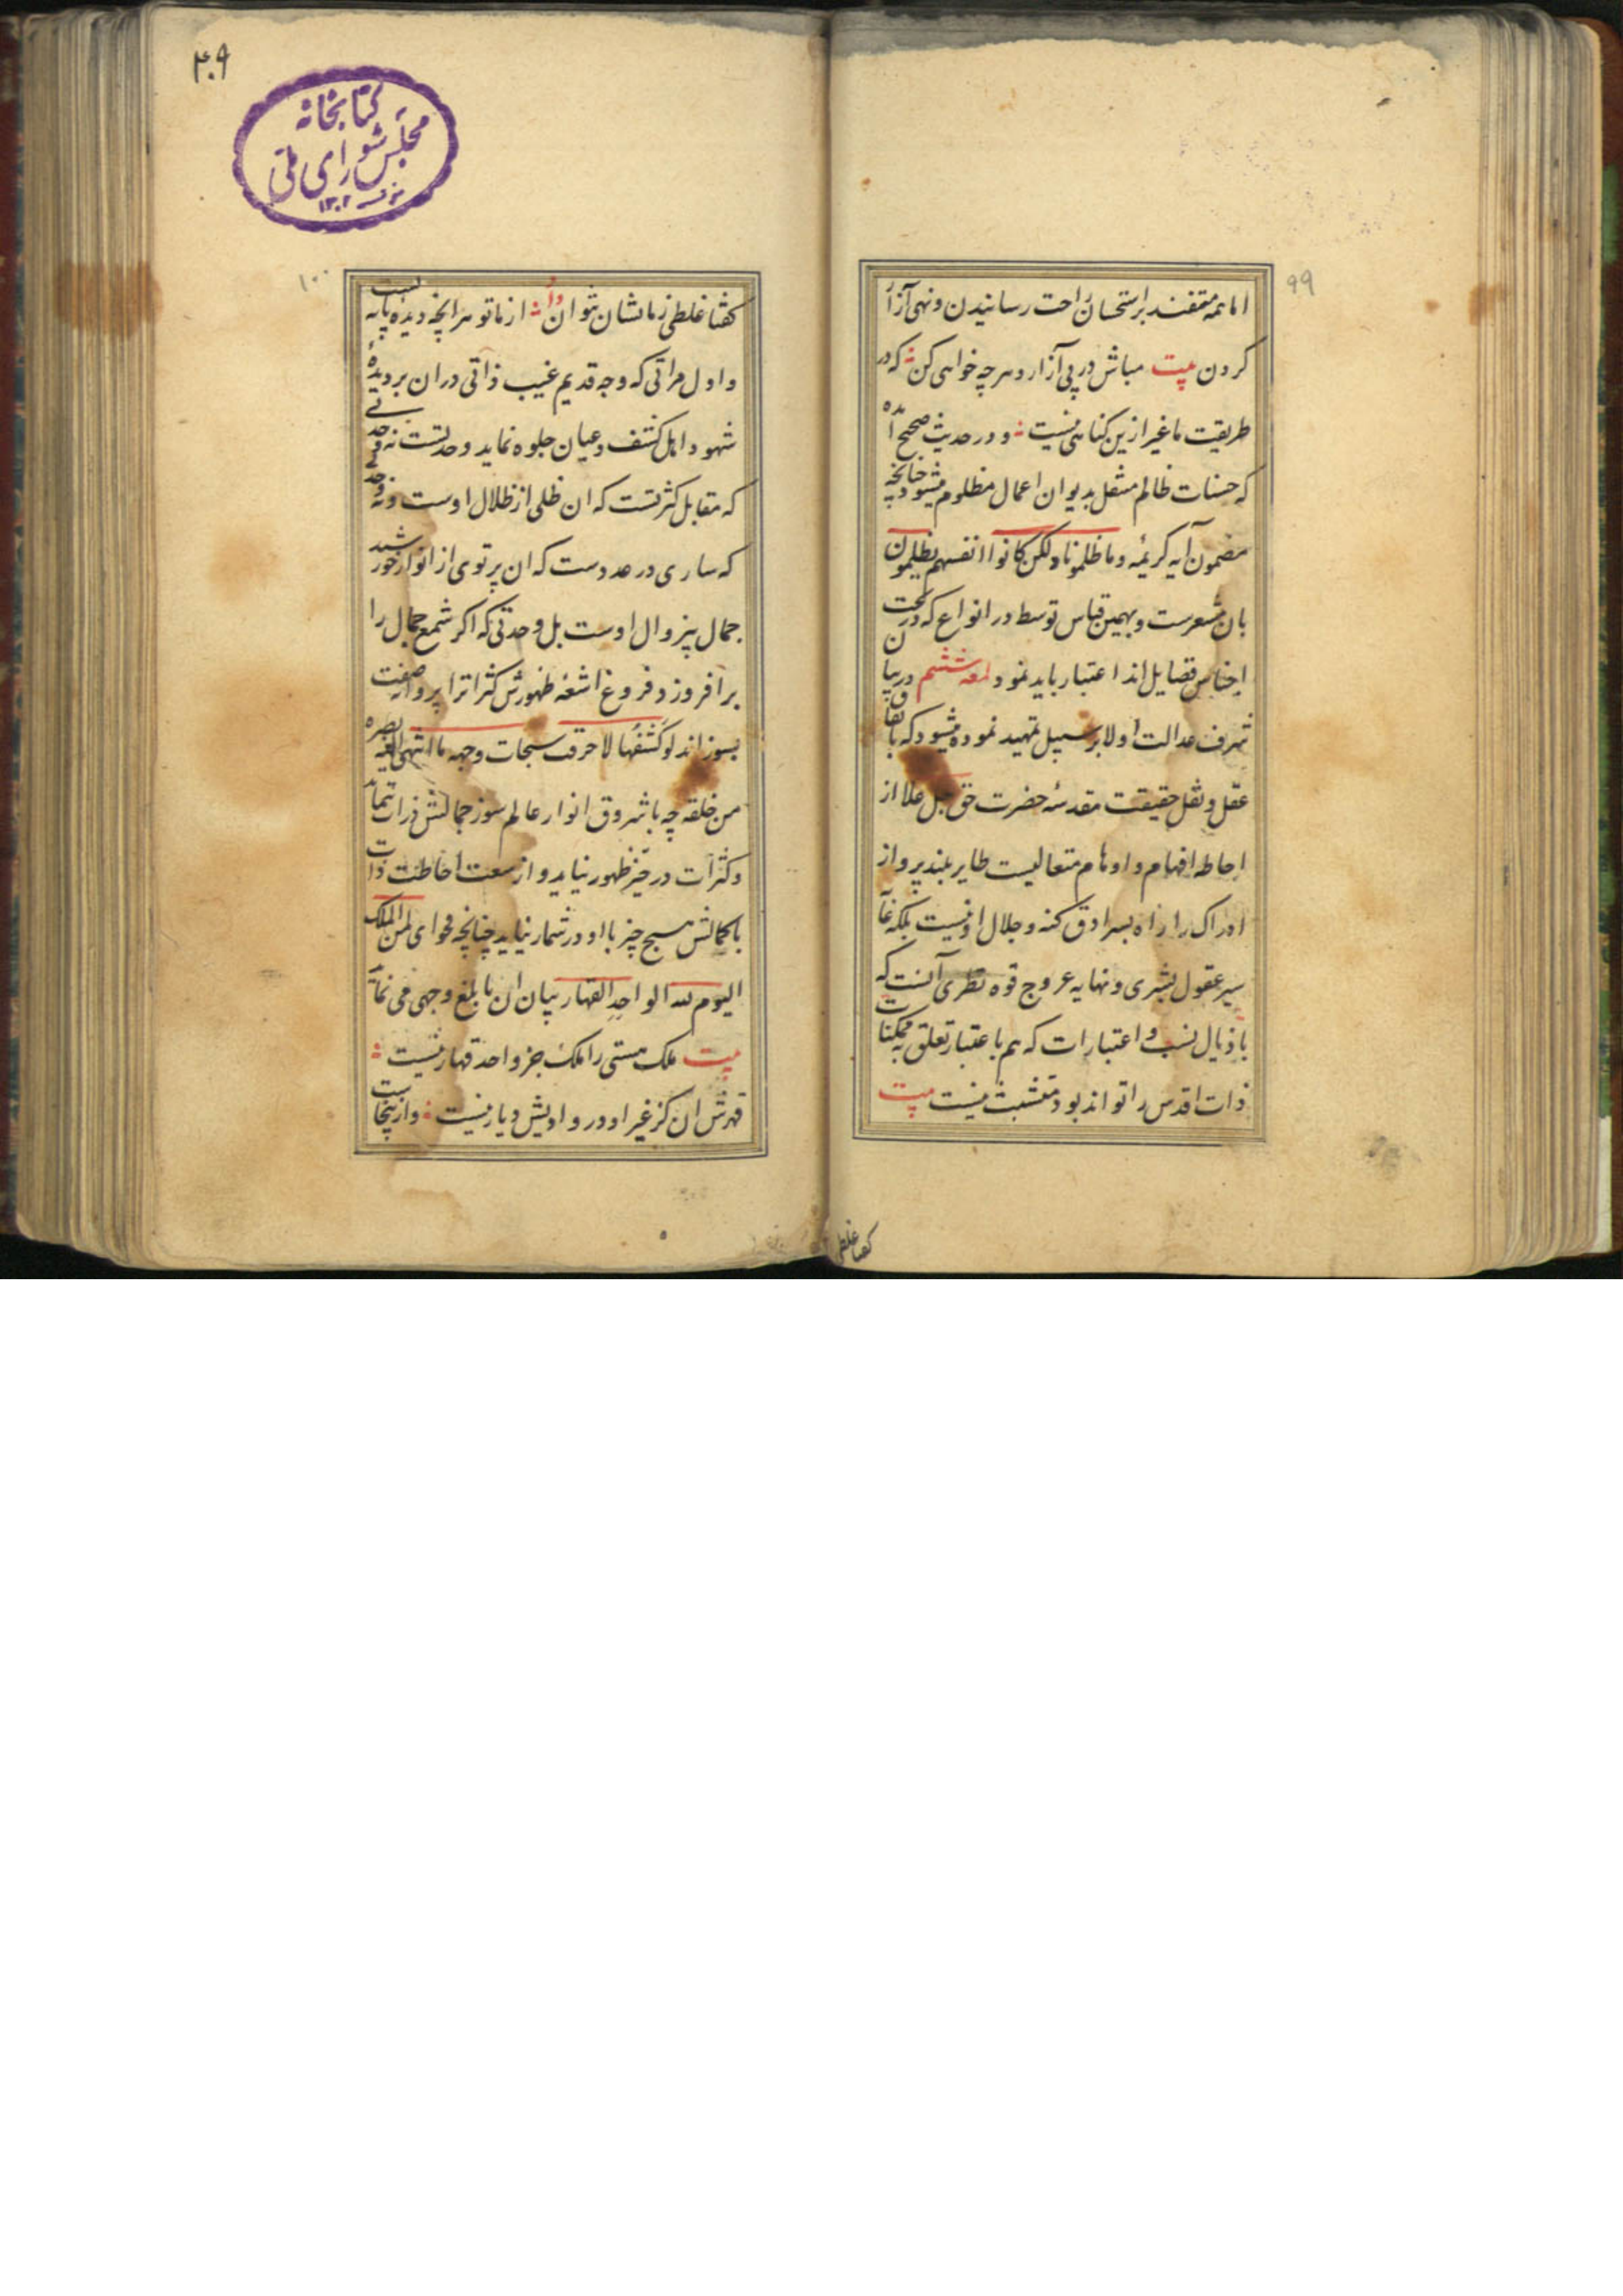 ۹۹
اما همه متفقند بر استحسان راحت رسانیدن و نهی آزار
کردن بیت مباش در پی آزار و هر چه خواهی کن که در
طریقت ما غیر ازین کناهی نیست و در حدیث صحیح آمده
که حسنات ظالم منتقل بدیوان اعمال مظلوم میشود چنانچه
مضمون آیه کریمه وما ظلمونا ولکن کانوا انفسهم یظلمون
بان مشعرست و بهمین قیاس توسط در انواع که در تحت
اجناس فضایل اند اعتبار باید نمود لمعه ششم در بیان
شرف عدالت اولا بر سبیل تمهید نموده میشود که باتفاق
عقل و نقل حقیقت مقدسه حضرت حق جل علا از
احاطه افهام و اوهام متعالیست طایر بلند پرواز
ادراک را راه بسرادق کنه و جلال او نیست بلکه غایت
سیر عقول بشری و نهایه عروج قوه نظری آنست که
باذیال نسب و اعتبارات که هم باعتبار تعلق به ممکنات
ذات اقدس را تواند بود متشبث نیست بیت
کفتا غلطی
۴۰۹
کتابخانه
مجلس شورای ملی
۱۳۰۲
۱۰۰
کفتا غلطی ز ما نشان نتوان داد از ما تو هر انچه دیده پایه تست
و اول مراتی که وجه قدیم غیب ذاتی دران بر دیده
شهود اهل کشف و عیان جلوه نماید وحدتست نه وحدتی
که مقابل کثرتست که ان ظلی از ظلال اوست و نه وحدتی
که ساری در عددست که ان پرتوی از انوار خورشید
جمال بیزوال اوست بل وحدتی که اکر شمع جمال را
برافروزد فروغ اشعه ظهورش کثراترا پروانه صفت
بسوزاند لو کشفها لاحرقت سبحات وجهه ما انتهی الیه بصره
من خلقه چه با شروق انوار عالم سوز جمالش ذرات
وکثرات در حیز ظهور نیاید و از سعت احاطت ذات
با کمالش هیچ چیز با او در شمار نیاید چنانچه فحوای لمن الملک
الیوم لله الواحد القهار بیان ان بابلغ وجهی می نماید
بیت ملک هستی را ملک جز واحد قهار نیست
قهرش ان کز غیر او در وادیش دیار نیست و ازینجاست